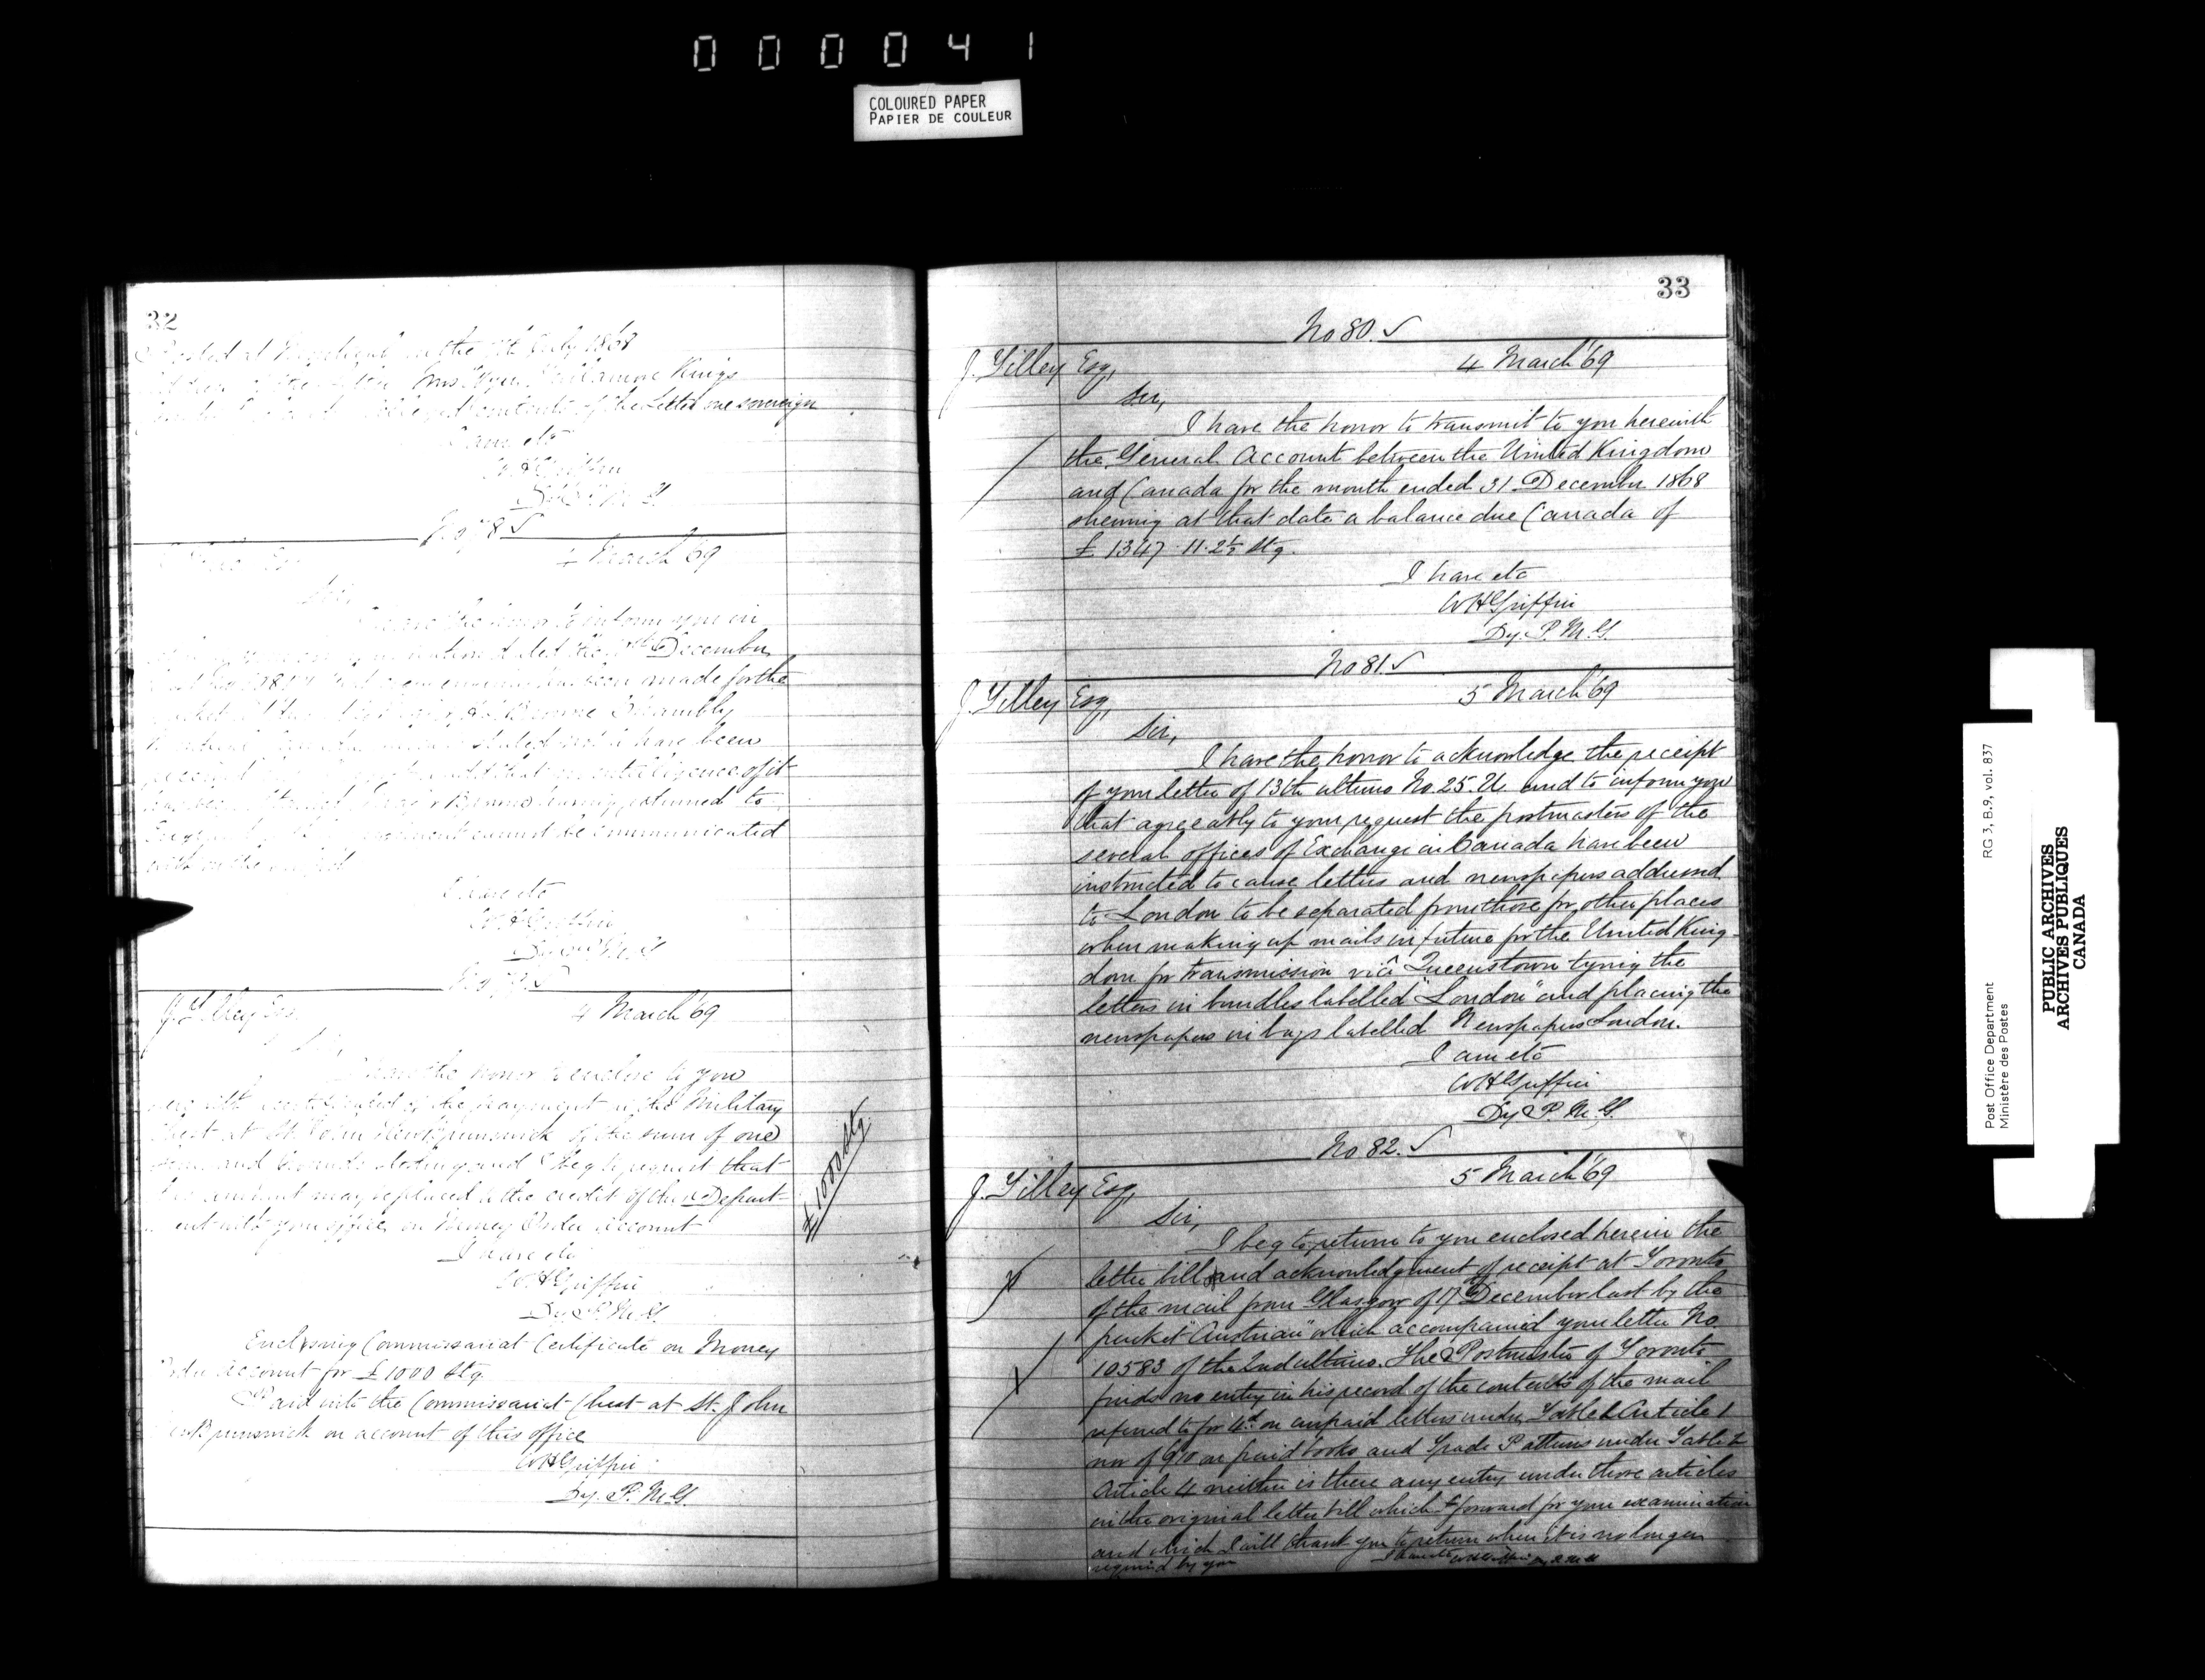 000041
COLOURED PAPER
PAPIER DE COULEUR
32
Posted at on the 7th July 1868
Mrs Kings
contents of the Letter one sovereign
I am etc
WHGriffin
Dy. P. M. G.
No 78 ✓
4 March '69
Sir,
I have the honor to inform you in
dated the December
made for the
Assembly
have been
intelligence of it
having returned to
cannot be communicated
with on the subject
I have etc
WHGriffin
Dy. P. M. G.
No 79 ✓
J. Tilley Esq.
4 March '69
Sir,
I have the honor to enclose to you
herewith certificate of the payment into the Military
Chest at St. John New Brunswick of the sum of one
thousand pounds sterling and I beg to request that
this amount may be placed to the credit of this Depart-
ment with your office on Money Order account
I have etc
WHGriffin
Dy. P. M. G.
Enclosing Commissariat Certificate on Money
Order Account for £1000 Stg.
Paid into the Commissariat Chest at St. John
New Brunswick on account of this office
WHGriffin
Dy. P. M. G.
£1000 Stg
33
No 80. ✓
J. Tilley Esq,
4 March '69
Sir,
I have the honor to transmit to you herewith
the General Account between the United Kingdom
and Canada for the month ended 31 December 1868
shewing at that date a balance due Canada of
£ 1347 . 11 . 2½ Stg.
I have etc
WHGriffin
Dy. P. M. G.
No 81. ✓
J. Tilley Esq,
5 March '69
Sir,
I have the honor to acknowledge the receipt
of your letter of 13th ultimo No. 25. U. and to inform you
that agreeably to your request the postmasters of the
several offices of Exchange in Canada have been
instructed to cause letters and newspapers addressed
to London to be separated from those for other places
when making up mails in future for the United King-
dom for transmission viâ Queenstown tying the
letters in bundles labelled "London" and placing the
newspapers in bags labelled Newspapers London.
I am etc
WHGriffin
Dy P. M. G.
No 82. ✓
J. Tilley Esq,
5 March '69
Sir,
I beg to return to you enclosed herein the
letter bill and acknowledgment of receipt at Toronto
of the mail from Glasgow of 17th December last by the
packet "Austrian" which accompanied your letter No.
10583 of the 2nd ultimo. The Postmaster of Toronto
finds no entry in his record of the contents of the mail
referred to for 4d on unpaid letters under Table 1 Article 1
nor of on paid books and Trade Patterns under Table 2
Article 4 neither is there any entry under those articles
in the original letter bill which I forward for your examination
and which I will thank you to return when it is no longer
required by you
I have etc WHGriffin Dy P. M. G.
Post Office Department
Ministère des Postes
RG 3, B.9, vol. 837
PUBLIC ARCHIVES
ARCHIVES PUBLIQUES
CANADA